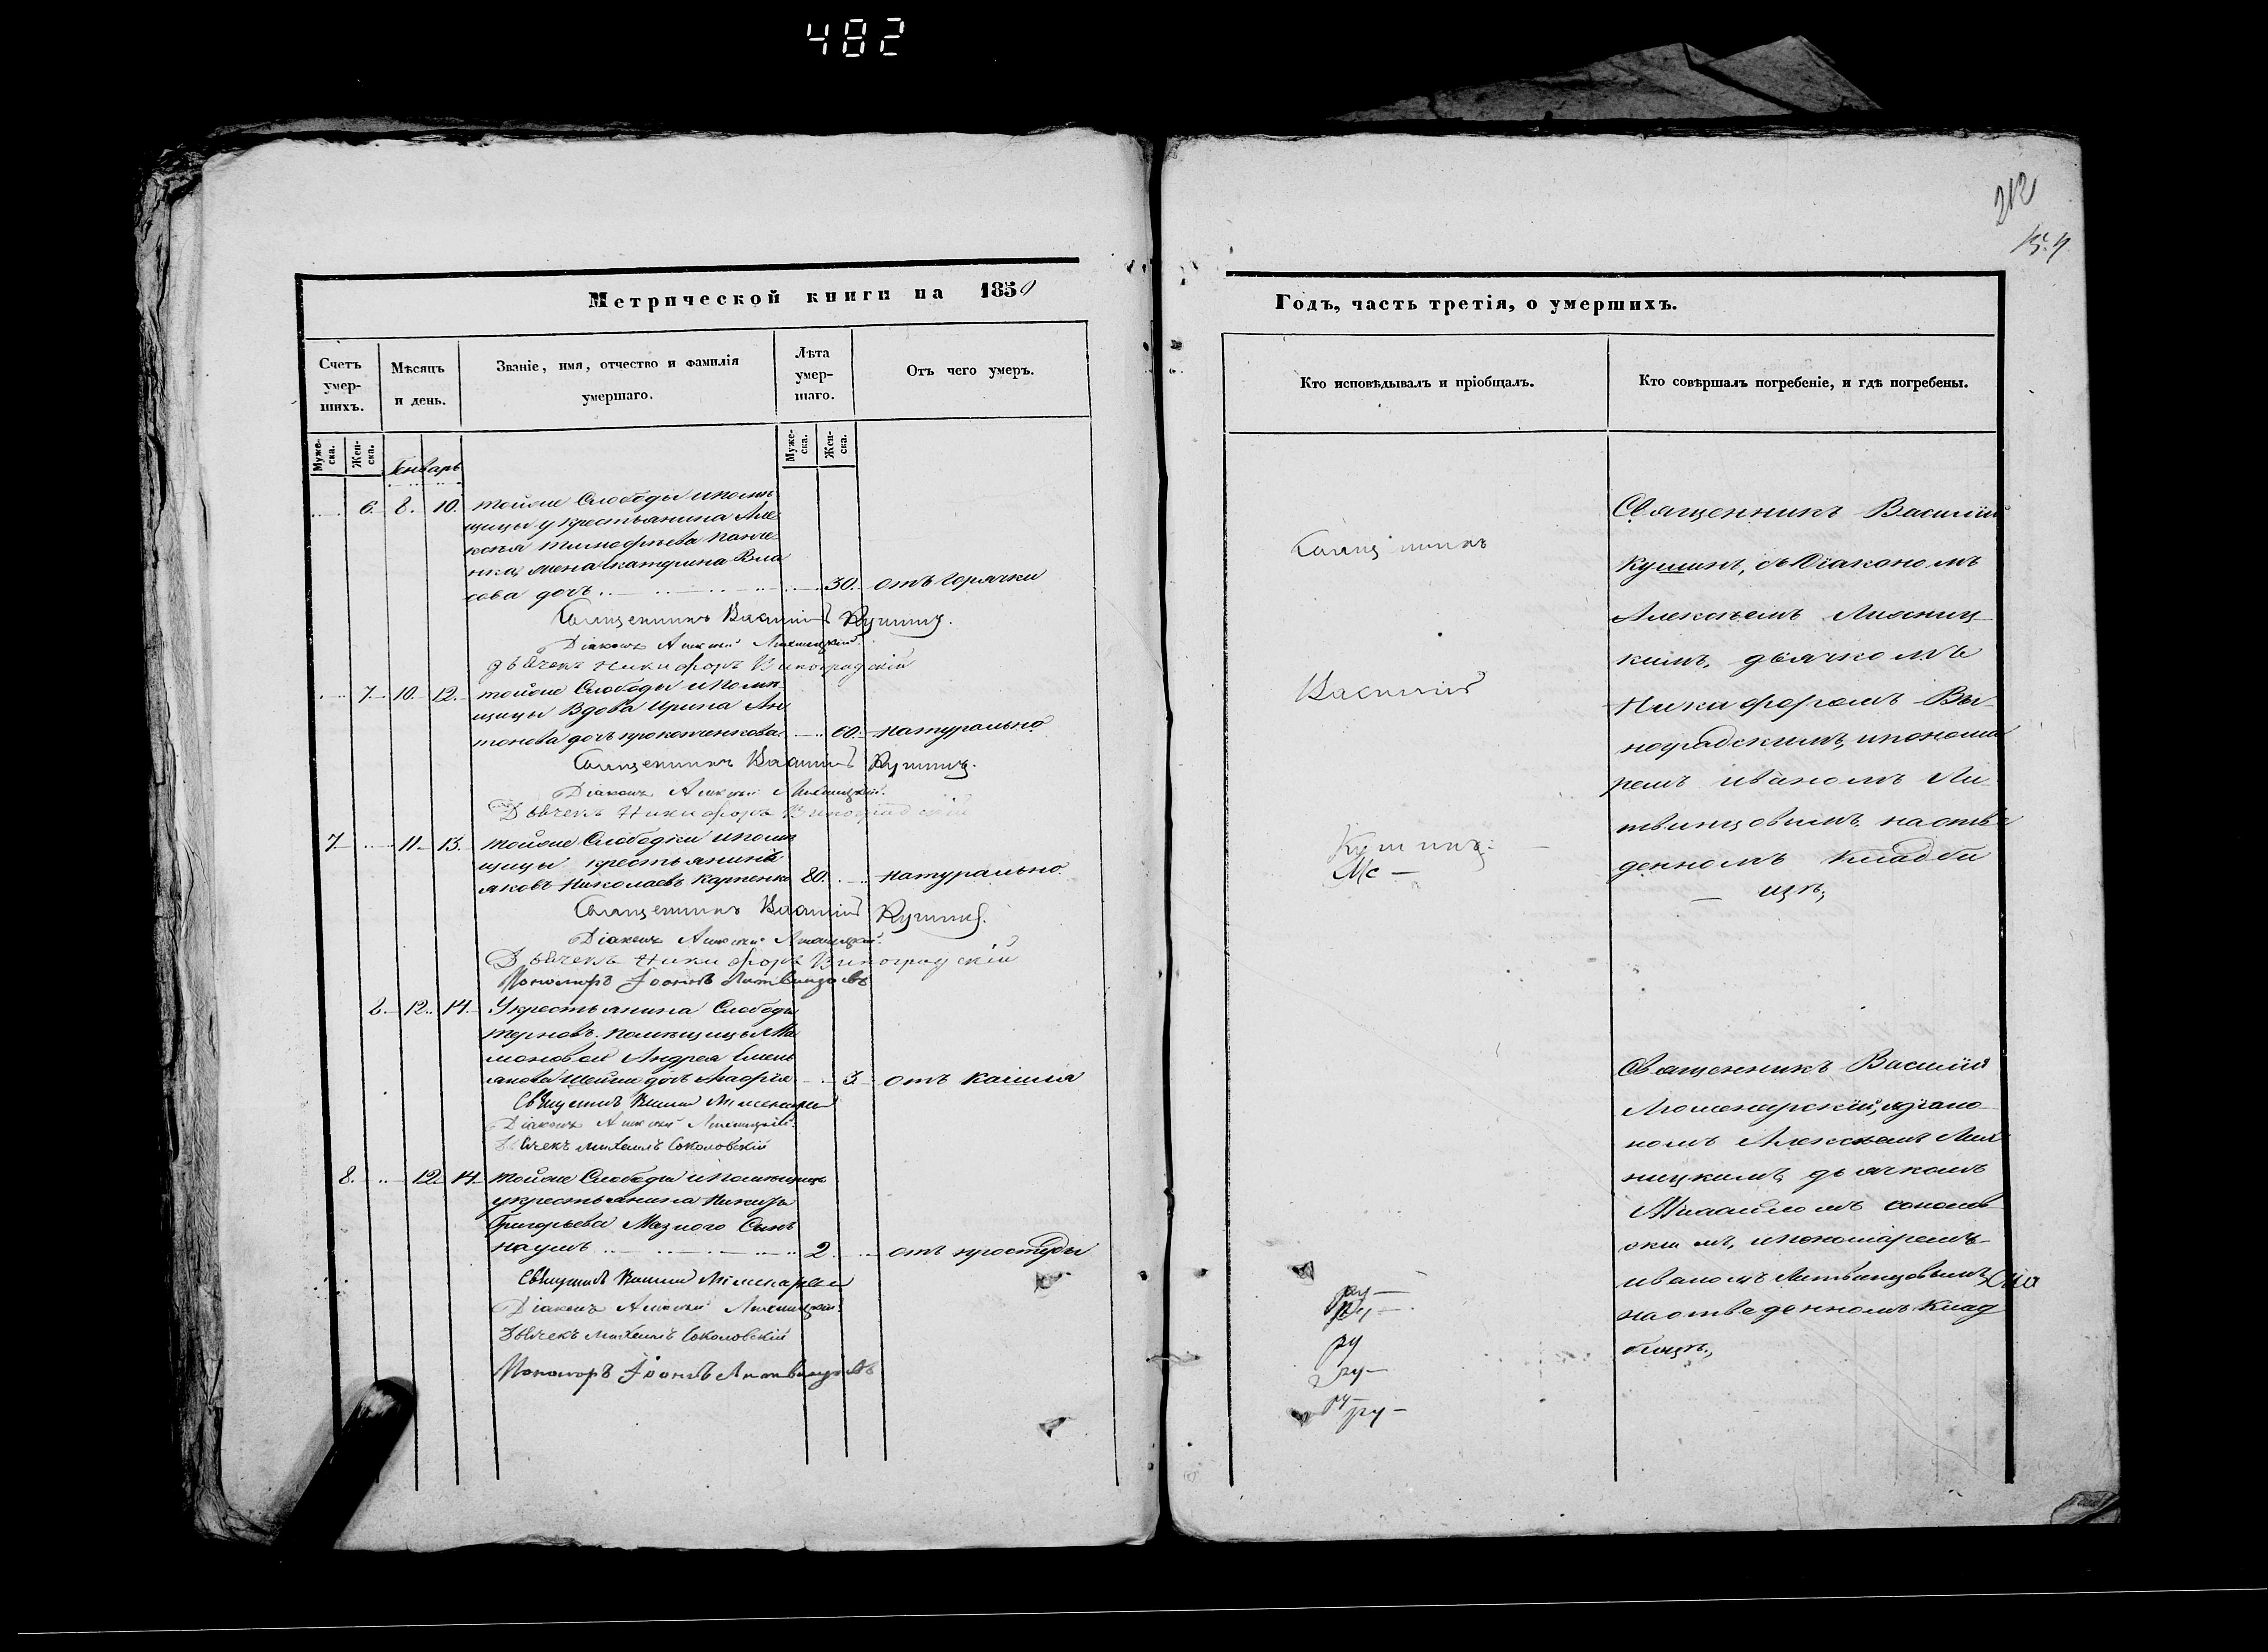 482
212
Метрической книги на 1850
Счетъ умер-шихъ.
Мѣсяцъ и день.
Званіе, имя, отчество и фамилія умершаго.
Лѣта умер-шаго.
Отъ чего умеръ.
Муже-ска.
Жен-ска.
Генварь
Муже-ска.
Жен-ска.
6. 8. 10. тойже Слободы и помѣ
щицы у крестьянина Але
ксѣя Тимофѣева Панче
нка, жена Екатерина Вла
сова дочь 30. отъ горячки
Священникъ Василій Кушинъ.
Діаконъ Алексѣй Лисницкій.
Дьячекъ Никифоръ Виноградскій
7. 10. 12. тойже Слободы и помѣ
щицы Вдова Ирина Ан
тонова дочь 60. натурально
Священникъ Василій Кушинъ.
Діаконъ Алексѣй Лисницкій.
Дьячекъ Никифоръ Виноградскій
7. 11. 13. тойже Слободки и помѣ
щицы крестьянинъ
Яковъ Николаевъ Карпенко 80. натурально
Священникъ Василій Кушинъ.
Діаконъ Алексѣй Лисницкій.
Дьячекъ Никифоръ Виноградскій
Пономарь Іоаннъ Литвинцовъ
8. 12. 14. У крестьянина Слободы
помѣщицы Ма
моновой Андрея Емель
янова дочь 3. отъ кашля
Василій
Діаконъ Алексѣй Лисницкій.
Дьячекъ Михаилъ Соколовскій
8. 12. 14. тойже Слободы и помѣщицы
у крестьянина Никиты
Григорьева Мазного Сынъ
Наумъ 2. отъ простуды
Василій
Діаконъ Алексѣй Лисницкій.
Дьячекъ Михаилъ Соколовскій
Пономарь Іоаннъ Литвинцовъ
Годъ, часть третія, о умершихъ.
Кто исповѣдывалъ и пріобщалъ.
Кто совѣршалъ погребеніе, и гдѣ погребены.
Священникъ
Василій
Кушинъ.
Священникъ Василій
Кушинъ, съ Діакономъ
Алексѣемъ Лисниц
кимъ, дьячкомъ
Никифоромъ Ви
ноградскимъ, и понома
ремъ Иваномъ Ли
твинцовымъ на отве
денномъ кладби
щѣ,
Священникъ Василій
съ діако
номъ Алексѣемъ Лис
ницкимъ, дьячкомъ
Михаиломъ Соколов
скимъ, и пономаремъ
Иваномъ Литвинцовымъ,
на отведенномъ клад
бищѣ,